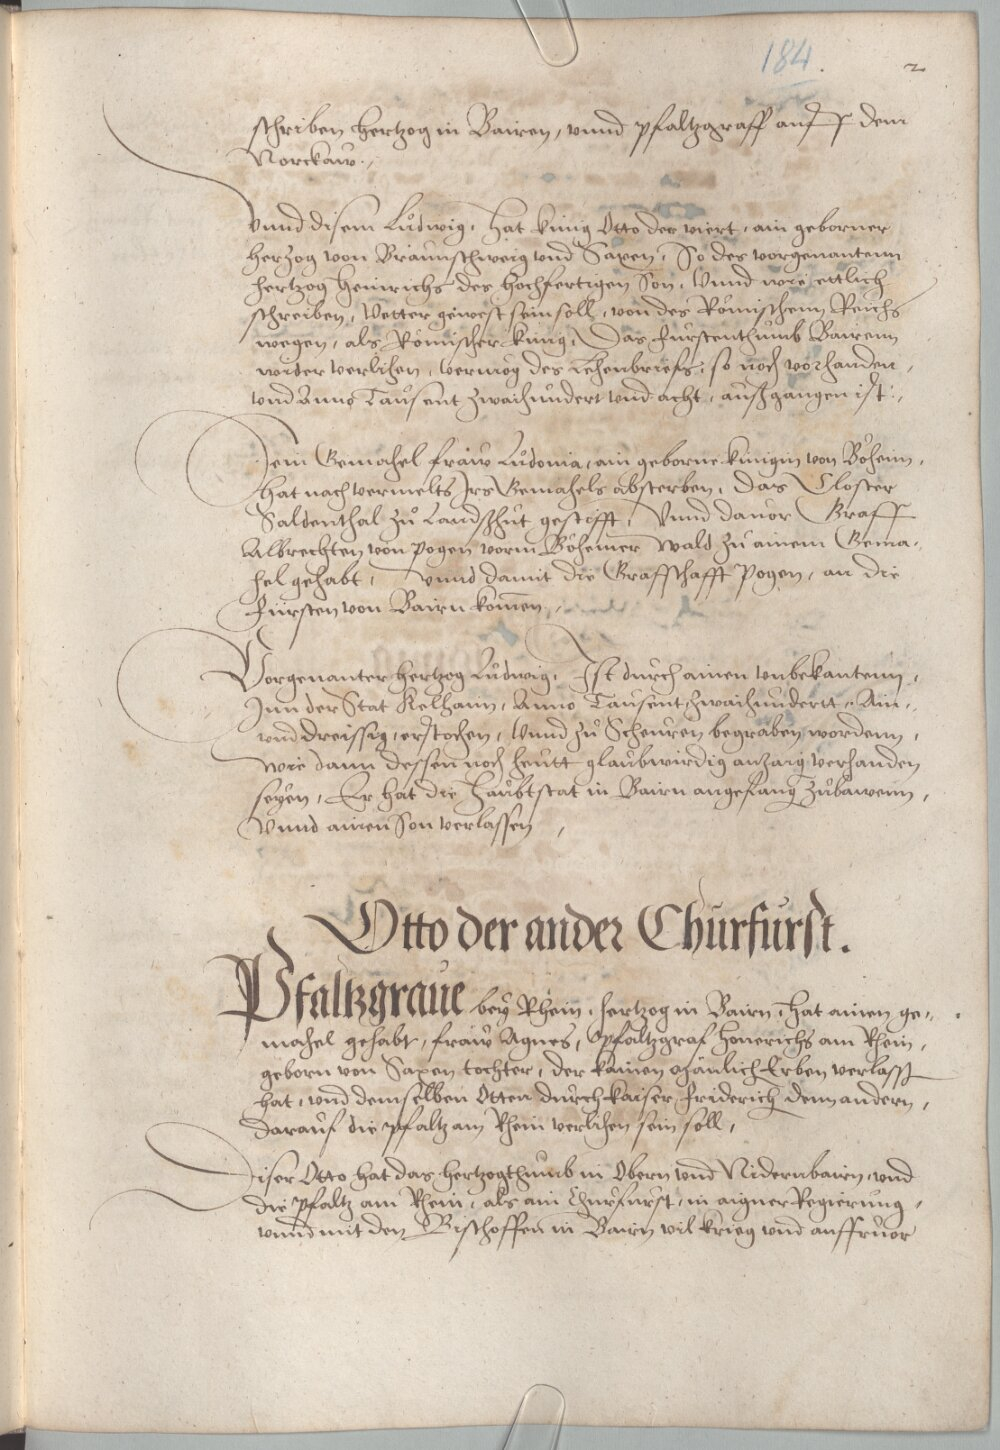 184.
2
schriben hertzog in Bairen, vnnd pfaltzgraff auf dem
Norckaw.,
Vnnd disem Ludwig, hat künig Otto der viert, ain geborner
hertzog von Braunschweig vnd Saxen, So des vorgenantenn
hertzog Heinrichs des hochfertigen Son, Vnnd wie ettlich
schreiben, Vetter gewest sein soll, von des Römischenn Reichs
wegen, als Römischer künig, Das fürstenthumb Bairenn
wider verlihen, vermög des Lehenbriefs, so noch vorhanden,
vnd Anno Tausent zwaihundert vnd acht, außgangen ist.,
Sein Gemahel fraw Ludomia, ain geborne künigin von Böheim,
hat nach vermelts Irs Gemahels absterben, Das Closter
Saldenthal zu Landßhut gestifft, Vnnd dauor Graff
Albrechten von pogen vorm Böhemer Wald zu ainem Gema-
hel gehabt, vnnd damit die Graffschafft Pogen, an die
Fürsten von Bairn komen,
Vorgenanter hertzog Ludwig, Ist durch ainen vnbekantenn,
Inn der Stat Kelhaim, Anno Tausent zwaihundertt, Ain-
vnd dreissig, erstochen, Vnnd zu Scheuren begraben wordenn,
wie dann dessen noch heutt glaubwirdig anzaig verhanden
seyen, Er hat die Haubtstat in Bairn angefang zubawenn,
Vnnd ainen Son verlassen,
Otto der ander Churfürst.
Pfaltzgraue bey Rhein, hertzog in Bairn, hat ainen ge-
mahel gehabt, fraw Agnes, Pfaltzgraf Heinrichs am Rhein,
geborn von Saxen tochter, der kainen mänlich Erben verlasst
hat, vnd demselben Otten durch kaiser Friderich denn andern,
darauf die pfaltz am Rhein verlihen sein soll,
Diser Otto hat das hertzogthumb in Obern vnd Nidernbairn, vnd
die pfaltz am Rhein, als ain Churfürst, in aigner Regierung,
vnnd mit den Bischoffen in Bairn vil krieg vnd auffruor